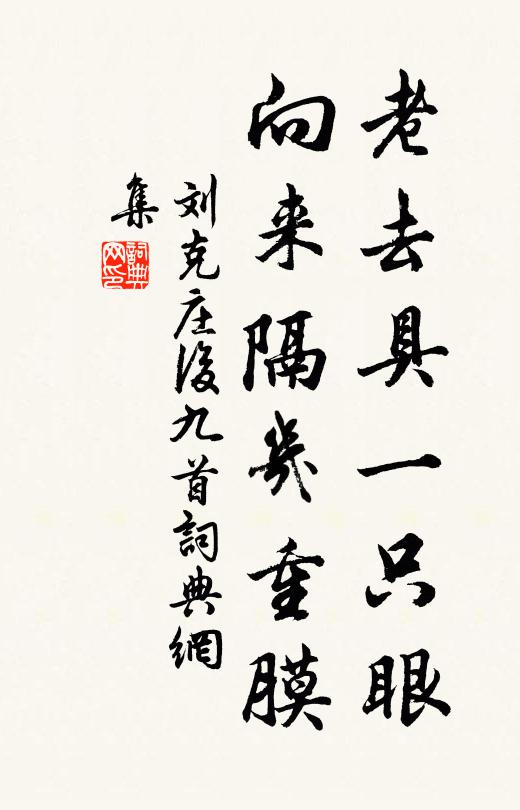 老去具一只眼
向来隔幾重膜
刘克庄後九首詞典網
集
詞典
网印